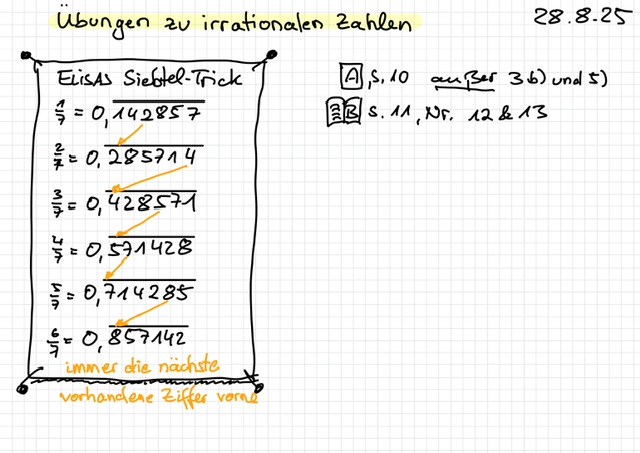 Übungen zu irrationalen Zahlen
28.8.25
ELISAS Siebtel-Trick
1/7 = 0,1̅4̅2̅8̅5̅7̅
2/7 = 0,2̅8̅5̅7̅1̅4̅
3/7 = 0,4̅2̅8̅5̅7̅1̅
4/7 = 0,5̅7̅1̅4̅2̅8̅
5/7 = 0,7̅1̅4̅2̅8̅5̅
6/7 = 0,8̅5̅7̅1̅4̅2̅
immer die nächste
vorhandene Ziffer vorne
A, S. 10 außer 3b) und 5)
B S. 11, Nr. 12 & 13